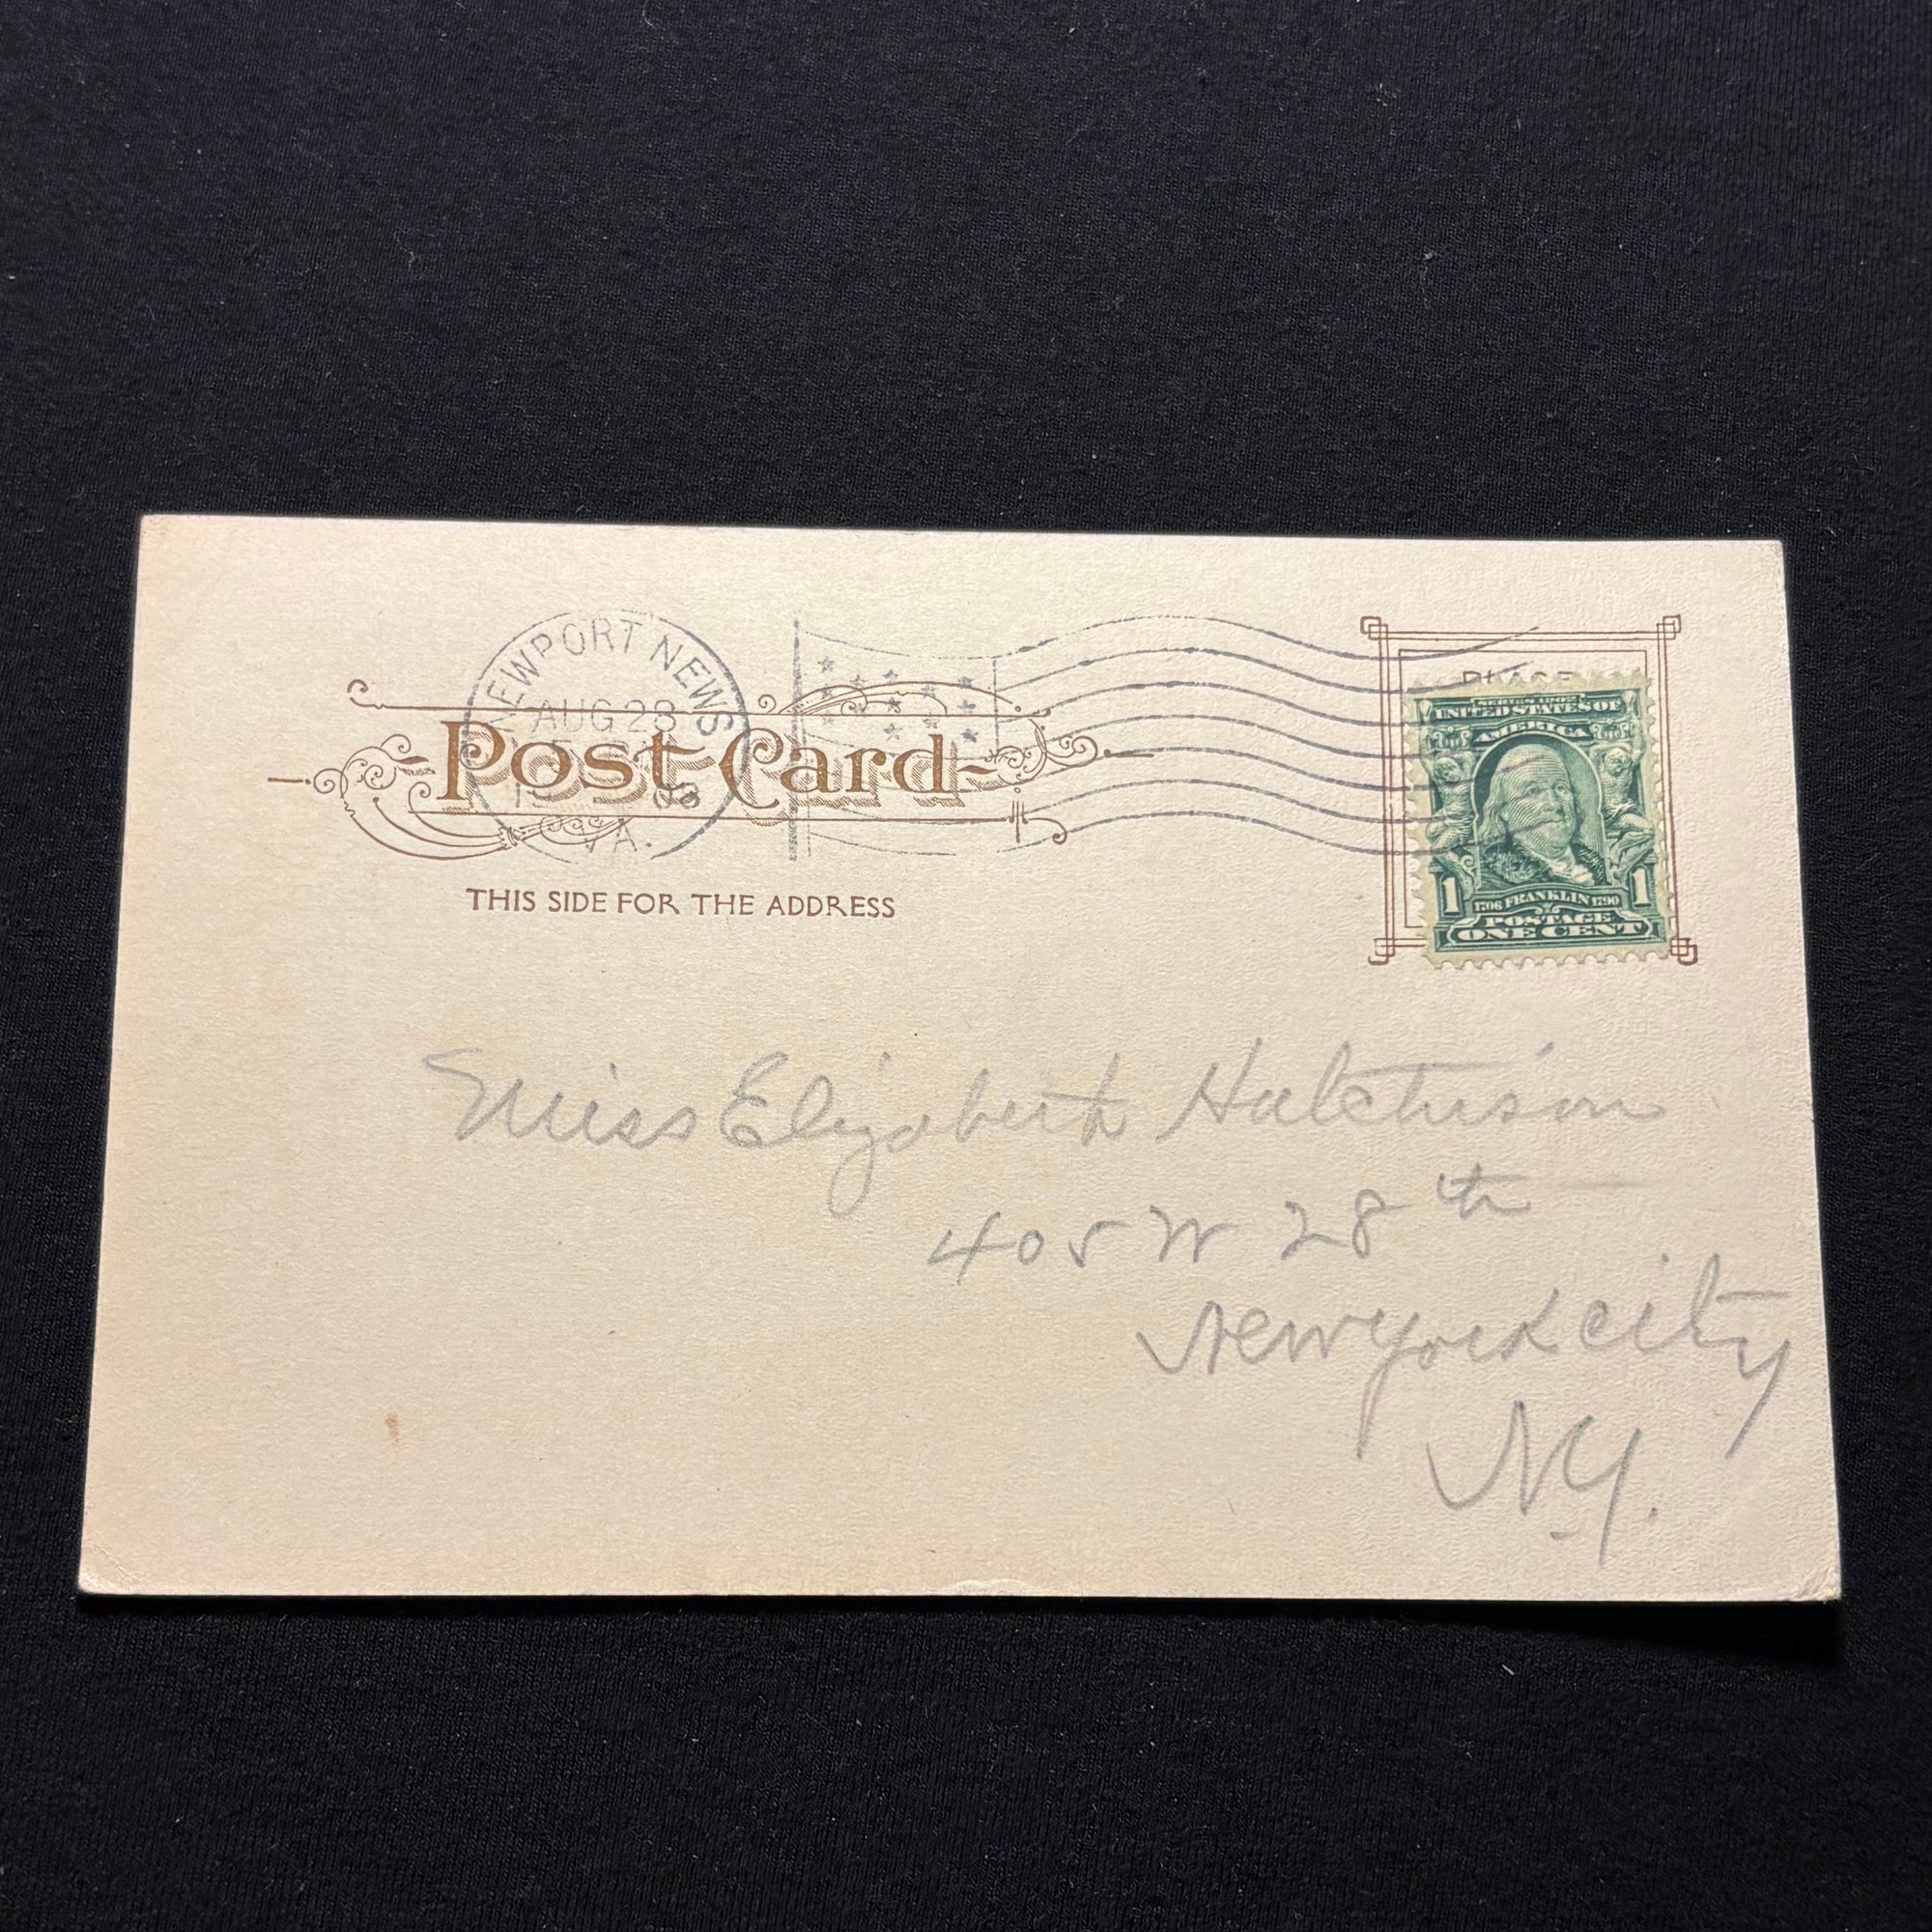 NEWPORT NEWS
AUG 28
VA.
Post Card
THIS SIDE FOR THE ADDRESS
PLACE
UNITED STATES OF
AMERICA
1 1706 FRANKLIN 1790 1
POSTAGE
ONE CENT
Miss Elizabeth Hutchison
405 W 28th
New York City
N.Y.